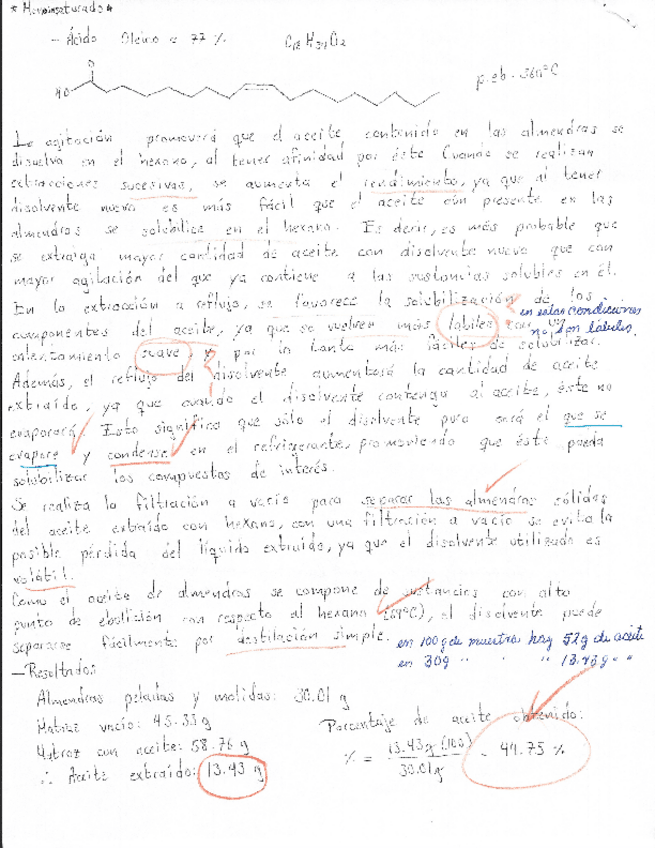 * Monoinsaturado *
- Ácido Oleico = 77 % C18 H34 O2
O
HO
p. eb. 360°C
La agitación promoverá que el aceite contenido en las almendras se
disuelva en el hexano, al tener afinidad por éste. Cuando se realizan
extracciones sucesivas, se aumenta el rendimiento, ya que al tener
disolvente nuevo es más fácil que el aceite aún presente en las
almendras se solubilice en el hexano. Es decir, es más probable que
se extraiga mayor cantidad de aceite con disolvente nuevo que con
mayor agitación del que ya contiene a las sustancias solubles en él.
En la extracción a reflujo, se favorece la solubilización de los
en estas condiciones
componentes del aceite, ya que se vuelven más lábiles con un
no son lábiles.
calentamiento suave, y por lo tanto más fáciles de solubilizar.
Además, el reflujo del disolvente aumentará la cantidad de aceite
extraído, ya que cuando el disolvente contenga al aceite, éste no
evaporará. Esto significa que sólo el disolvente puro será el que se
evapore y condense en el refrigerante, promoviendo que éste pueda
solubilizar los compuestos de interés.
Se realiza la filtración a vacío para separar las almendras sólidas
del aceite extraído con hexano, con una filtración a vacío se evita la
posible pérdida del líquido extraído, ya que el disolvente utilizado es
volátil.
Como el aceite de almendras se compone de sustancias con alto
punto de ebullición con respecto al hexano (69°C), el disolvente puede
separarse fácilmente por destilación simple.
en 100g de muestra hay 52g de aceite
en 30g " " " 13.43g " "
- Resultados
Almendras peladas y molidas: 30.01 g
Matraz vacío: 45.33 g
Matraz con aceite: 58.76 g
∴ Aceite extraído: 13.43 g
Porcentaje de aceite obtenido:
% = 13.43g (100) / 30.01g = 44.75 %